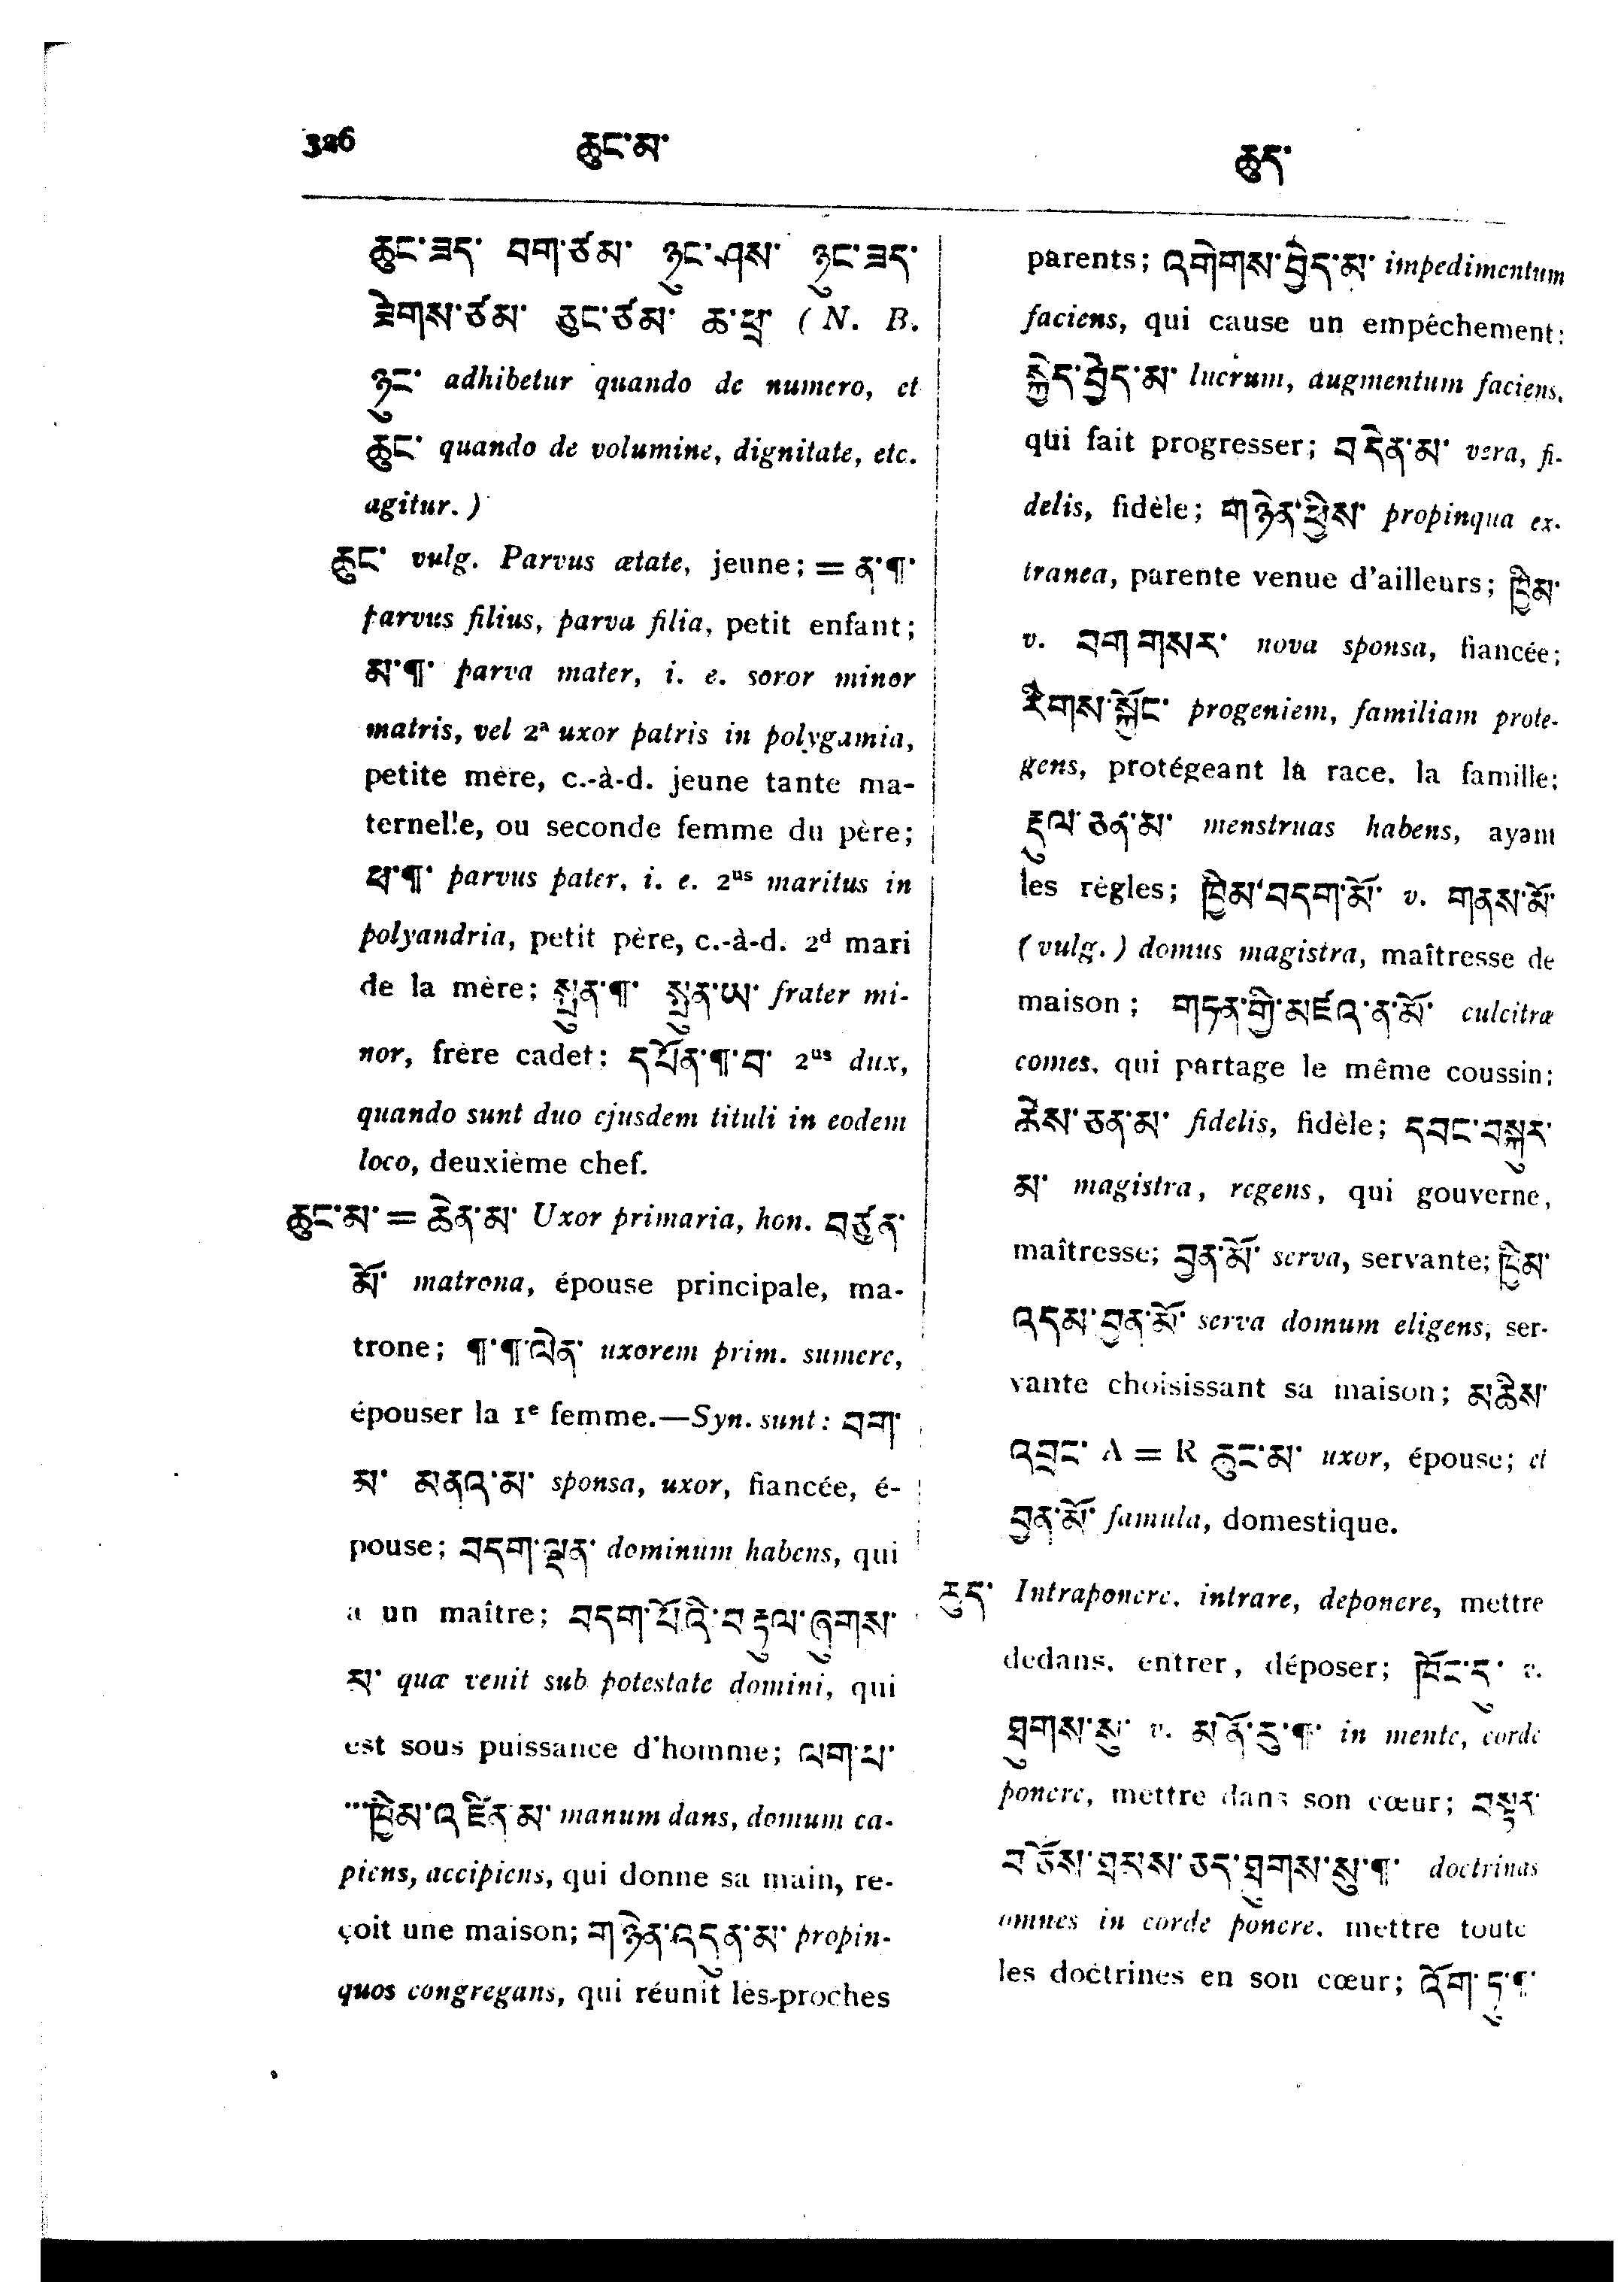 326 ཆུང་མ་ ཆུད་
ཆུང་ཟད་ བག་ཙམ་ ཉུང་ཤས་ ཉུང་ཟད་
ཟེགས་ཙམ་ ཅུང་ཙམ་ ཆ་ཕྲ་ (N. B.
ཉུང་ adhibetur quando de numero, et
ཆུང་ quando de volumine, dignitate, etc.
agitur.)
ཆུང་ vulg. Parvus ætate, jeune; = ན་¶་
parvus filius, parva filia, petit enfant;
མ་¶་ parva mater, i. e. soror minor
matris, vel 2ª uxor patris in polygamia,
petite mère, c.-à-d. jeune tante ma-
ternelle, ou seconde femme du père;
ཕ་¶་ parvus pater, i. e. 2us maritus in
polyandria, petit père, c.-à-d. 2d mari
de la mère; སྤུན་¶་ སྤུན་ཡ་ frater mi-
nor, frère cadet; དཔོན་¶་བ་ 2us dux,
quando sunt duo ejusdem tituli in eodem
loco, deuxième chef.
ཆུང་མ་ = ཆེན་མ་ Uxor primaria, hon. བཙུན་
མོ་ matrona, épouse principale, ma-
trone; ¶་¶་ལེན་ uxorem prim. sumere,
épouser la 1e femme.—Syn. sunt: བག་
མ་ མནའ་མ་ sponsa, uxor, fiancée, é-
pouse; བདག་ལྡན་ dominum habens, qui
a un maître; བདག་པོའི་བརྡུལ་ཞུགས་
མ་ quæ venit sub potestate domini, qui
est sous puissance d'homme; ལག་པ་
…ཁྱིམ་འཛིན་མ་ manum dans, domum ca-
piens, accipiens, qui donne sa main, re-
çoit une maison; གཉེན་འདུན་མ་ propin-
quos congregans, qui réunit les proches
parents; འགེགས་བྱེད་མ་ impedimentum
faciens, qui cause un empêchement;
སྐྱེད་བྱེད་མ་ lucrum, augmentum faciens,
qui fait progresser; བདེན་མ་ vera, fi-
delis, fidèle; གཉེན་ཕྱིས་ propinqua ex-
tranea, parente venue d'ailleurs; ཁྱིམ་
v. བག་གསར་ nova sponsa, fiancée;
རིགས་སྐྱོང་ progeniem, familiam prote-
gens, protégeant la race, la famille;
རྡུལ་ཅན་མ་ menstruas habens, ayant
les règles; ཁྱིམ་བདག་མོ་ v. གནས་མོ་
(vulg.) domus magistra, maîtresse de
maison; གདན་གྱི་མཛའ་ན་མོ་ culcitræ
comes, qui partage le même coussin;
ཆེས་ཅན་མ་ fidelis, fidèle; དབང་བསྐུར་
མ་ magistra, regens, qui gouverne,
maîtresse; བྲན་མོ་ serva, servante; ཁྱིམ་
འདམ་བྲན་མོ་ serva domum eligens, ser-
vante choisissant sa maison; མཆིས་
འབྲང་ A = R ཆུང་མ་ uxor, épouse; et
བྲན་མོ་ famula, domestique.
ཆུད་ Intraponere, intrare, deponere, mettre
dedans, entrer, déposer; ཁོང་དུ་ v.
ཐུགས་སུ་ v. མནོ་རུ་¶་ in mente, corde
ponere, mettre dans son cœur; བསྟན་
བཅོས་ཐམས་ཅད་ཐུགས་སུ་¶་ doctrinas
omnes in corde ponere, mettre toute
les doctrines en son cœur; འོག་ཏུ་¶་